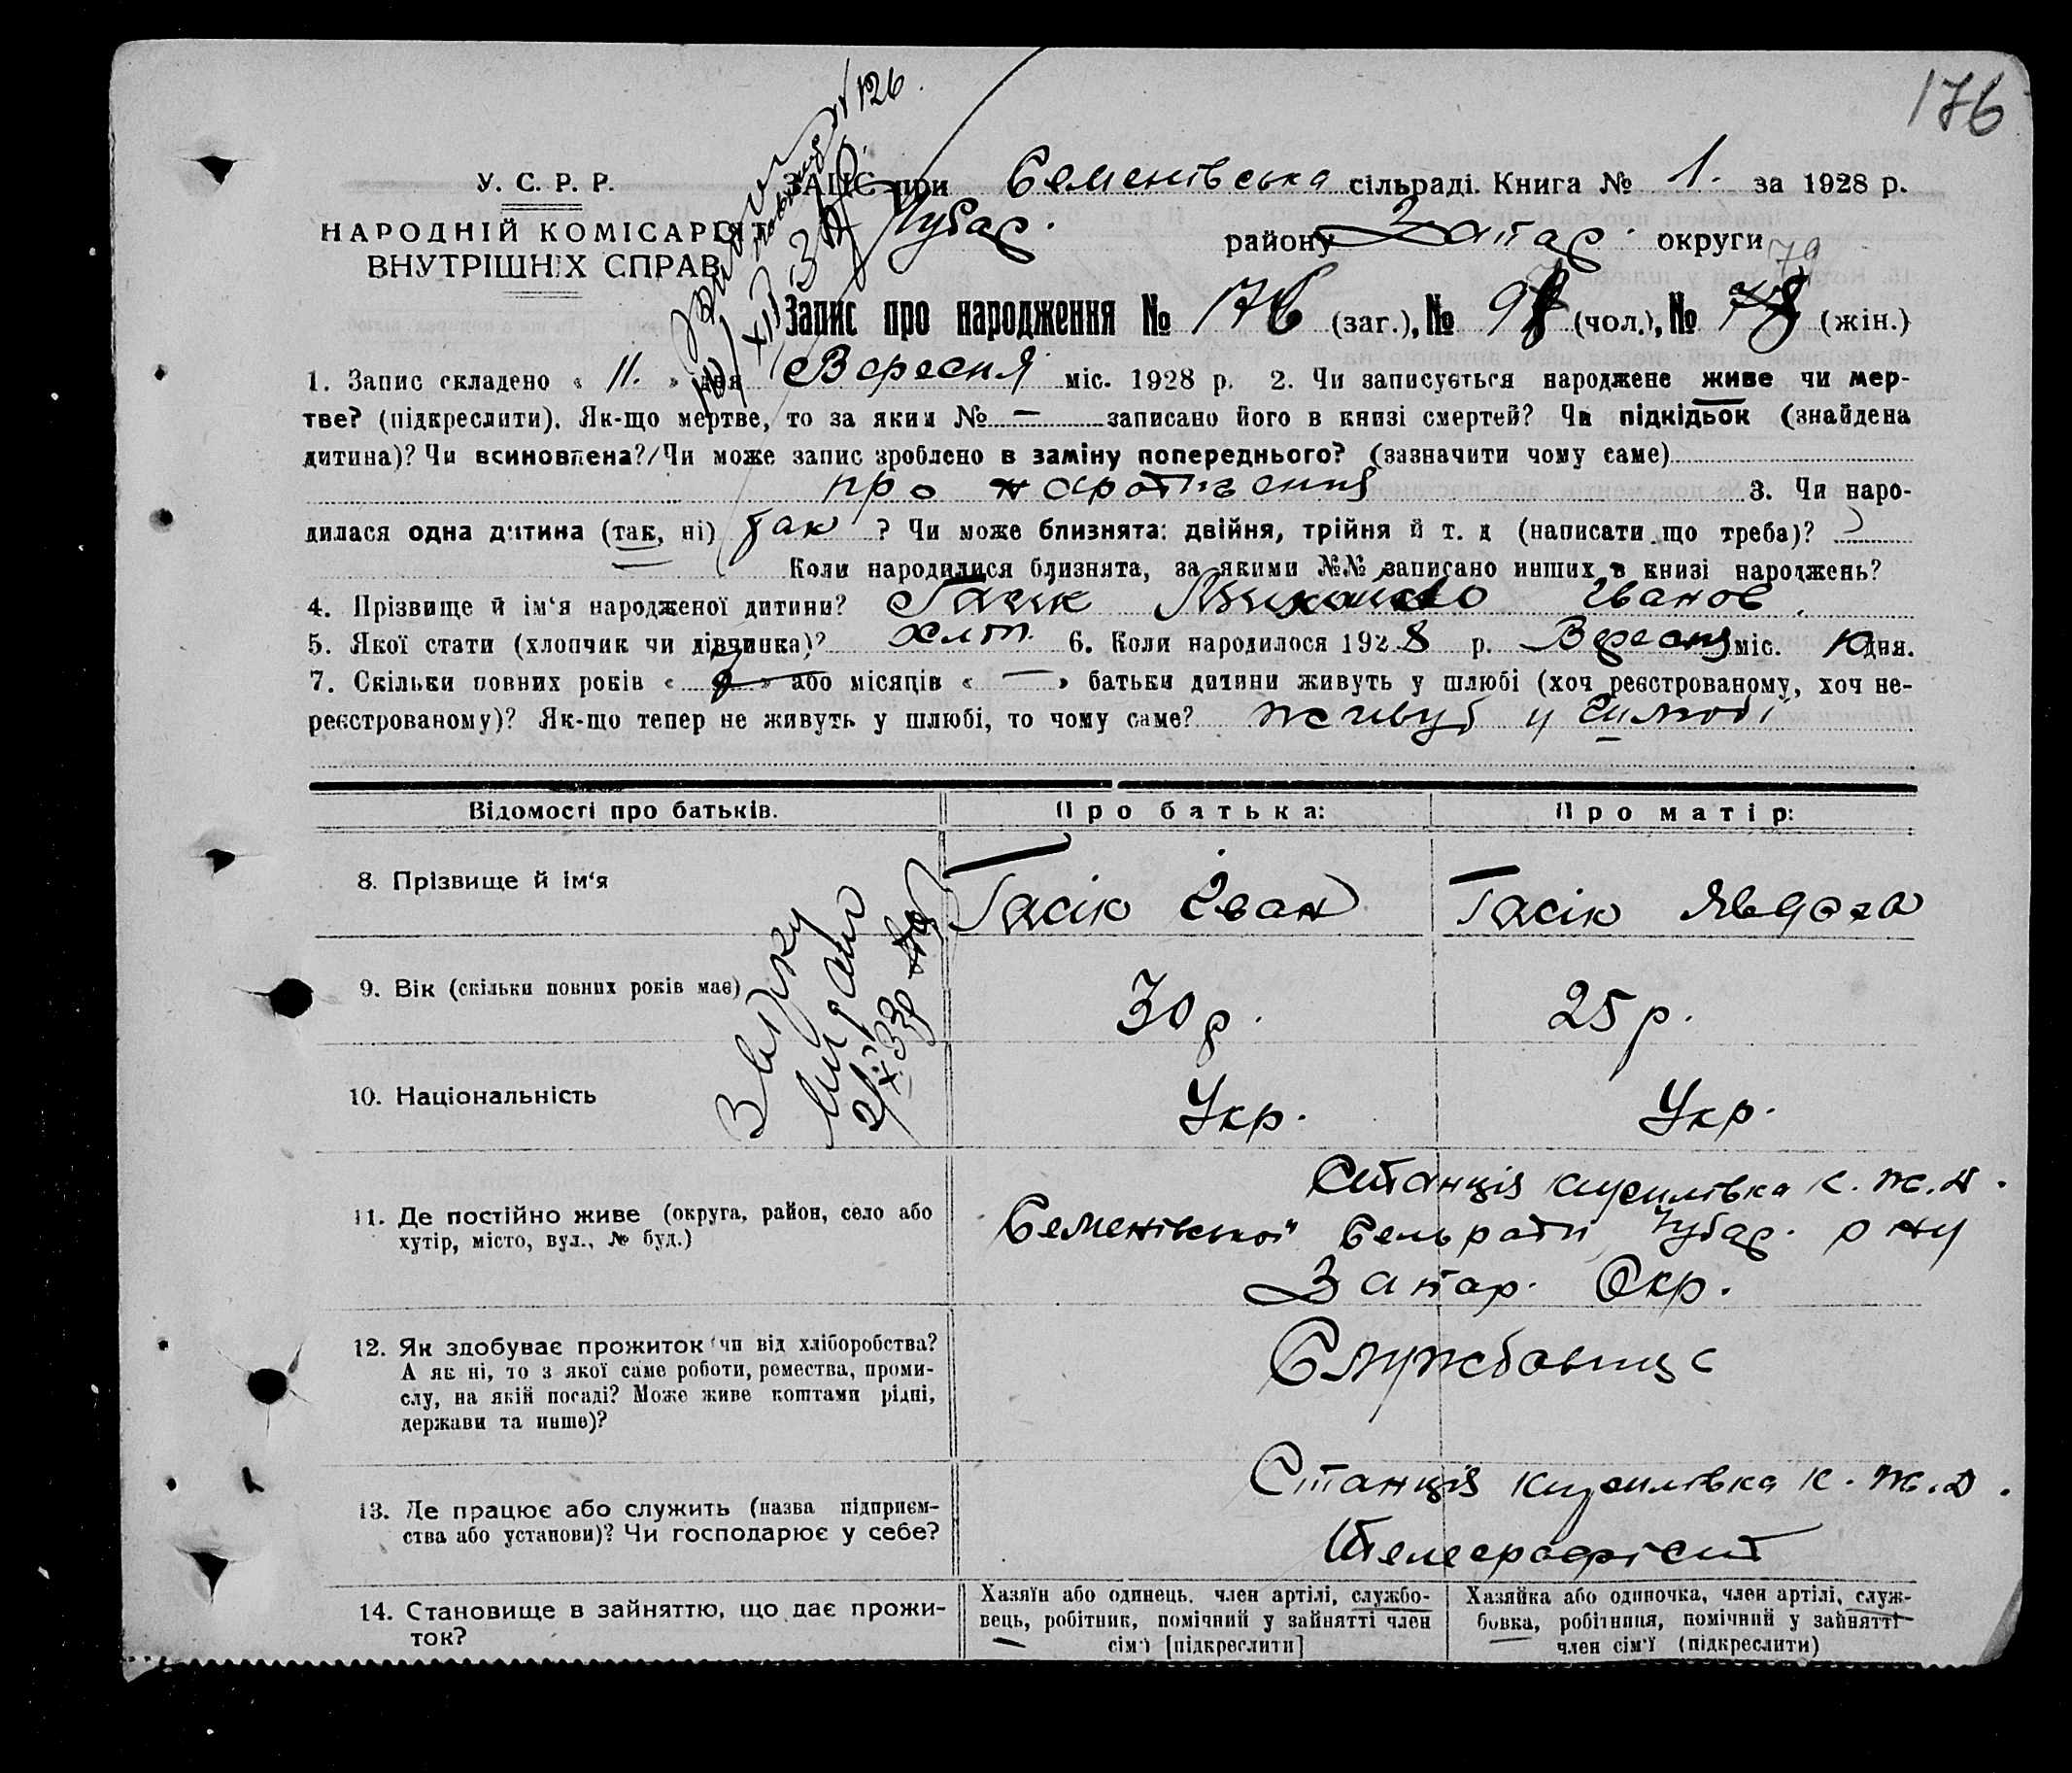 176
№ 126
У. С. Р. Р.
НАРОДНІЙ КОМІСАРІЯТ
ВНУТРІШНІХ СПРАВ
ЗАПІС при Семенівська сільраді. Книга № 1. за 1928 р.
Чубар. району Запор. округи
79
Запис про народження № 176 (заг.), № 98 (чол.), № 78 (жін.)
1. Запис складено « 11. » дня Вересня міс. 1928 р. 2. Чи записується народжене живе чи мер-
тве? (підкреслити). Як-що мертве, то за яким № — записано його в книзі смертей? Чи підкідьок (знайдена
дитина)? Чи всиновлена? Чи може запис зроблено в заміну попереднього? (зазначити чому саме)
про народження 3. Чи наро-
дилася одна дитина (так, ні) так ? Чи може близнята: двійня, трійня й т. д (написати що треба)?
Коли народилися близнята, за якими №№ записано инших в книзі народжень?
4. Прізвище й ім‘я народженої дитини? Гасік Іванов
5. Якої стати (хлопчик чи дівчинка)? хлоп. 6. Коли народилося 1928 р. Вересня міс. 10 дня.
7. Скільки повних років « » або місяців « — » батьки дитини живуть у шлюбі (хоч реєстрованому, хоч не-
реєстрованому)? Як-що тепер не живуть у шлюбі, то чому саме? живуть у шлюбі
Відомості про батьків. Про батька: Про матір:
8. Прізвище й ім‘я Гасік Іван Гасік Явдоха
9. Вік (скільки повних років має) 30 р. 25 р.
Звірку
10. Національність Укр. Укр.
11. Де постійно живе (округа, район, село або
хутір, місто, вул., № буд.)
Станція К. Ж. Д.
Семенівської Сельради Чубар. р-ну
Запор. Окр.
12. Як здобуває прожиток чи від хліборобства?
А як ні, то з якої саме роботи, ремества, проми-
слу, на якій посаді? Може живе коштами рідні,
держави та инше)?
Службовище
13. Де працює або служить (назва підприєм-
ства або установи)? Чи господарює у себе?
Станція К. Ж. Д.
Телеграфіст
14. Становище в зайняттю, що дає прожи-
ток?
Хазяїн або одинець. член артілі, службо-
вець, робітник, помічний у зайнятті член
сім‘ї [підкреслити]
Хазяйка або одиночка, член артілі, служ-
бовка, робітниця, помічний у зайнятті
член сім‘ї (підкреслити)